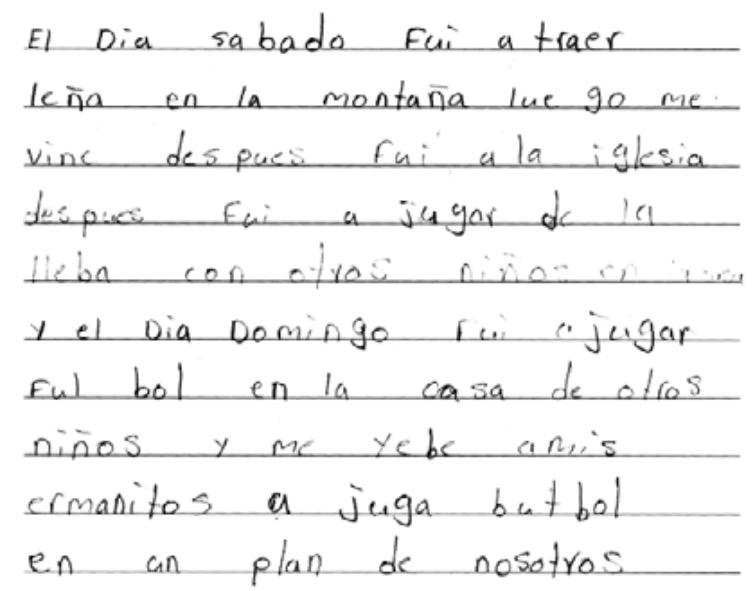 El Dia sabado Fui a traer
leña en la montaña lue go me
vine des pues fui a la iglesia
des pues Fui a jugar de la
lleba con otros niños en
y el Dia Domingo Fui a jugar
Ful bol en la casa de otros
niños y me yebe a mis
ermanitos a juga but bol
en un plan de nosotros